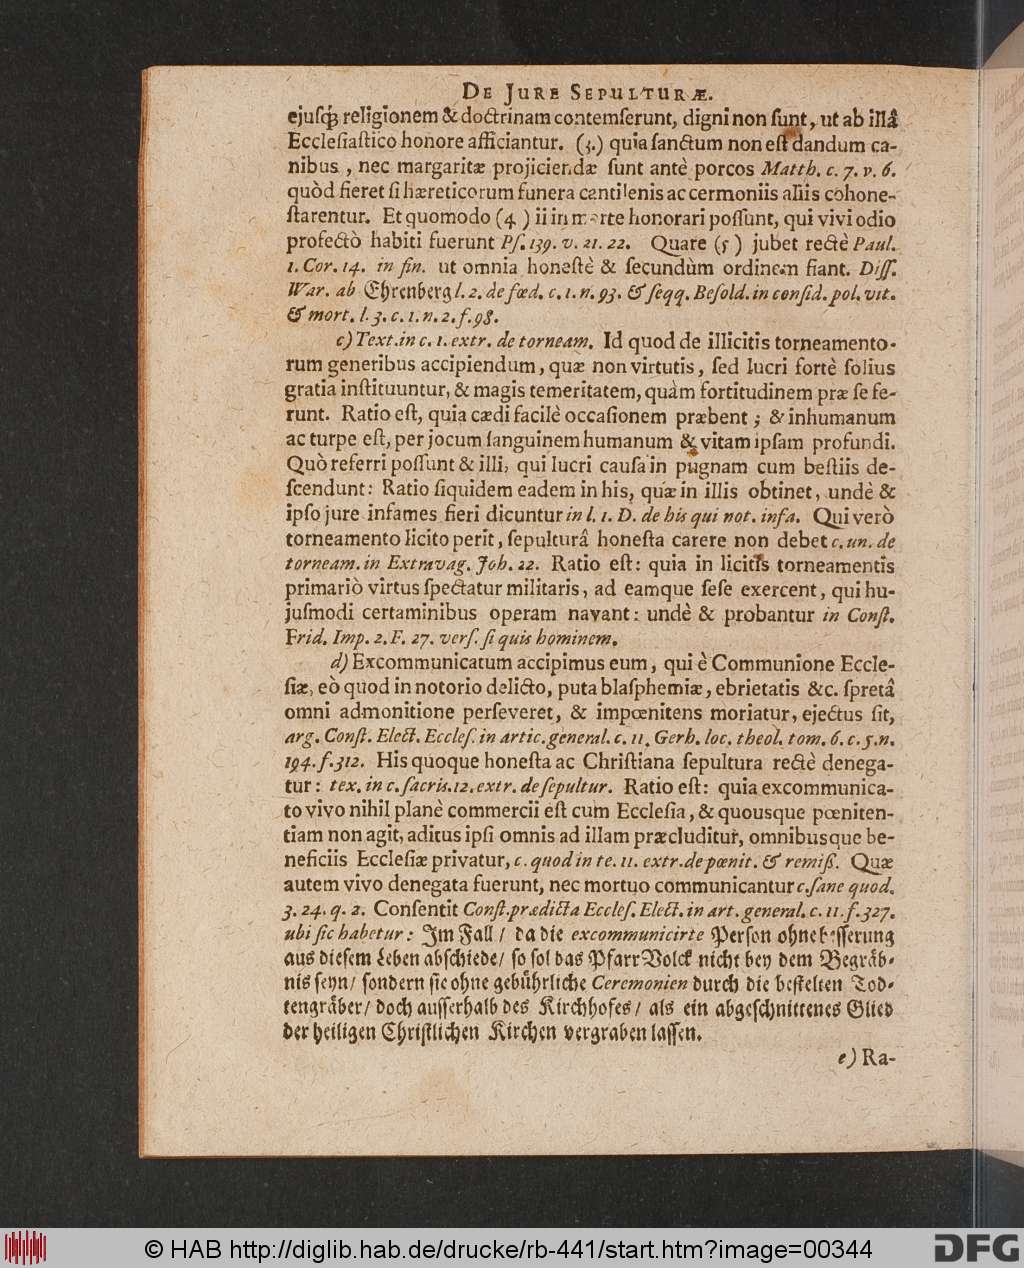 De Jure Sepulturæ.
ejusq́; religionem & doctrinam contemserunt, digni non sunt, ut ab illâ
Ecclesiastico honore afficiantur. (3.) quia sanctum non est dandum ca-
nibus, nec margaritæ projiciendæ sunt antè porcos Matth. c. 7. v. 6.
quòd fieret si hæreticorum funera cantilenis ac cermoniis aliis cohone-
starentur. Et quomodo (4) ii in morte honorari possunt, qui vivi odio
profectò habiti fuerunt Ps. 139. v. 21. 22. Quare (5) jubet rectè Paul.
1. Cor. 14. in fin. ut omnia honestè & secundùm ordinem fiant. Diss.
War. ab Ehrenberg l. 2. de fœd. c. 1. n. 93. & seqq. Besold. in consid. pol. vit.
& mort. l. 3. c. 1. n. 2. f. 98.
c) Text. in c. 1. extr. de torneam. Id quod de illicitis torneamento-
rum generibus accipiendum, quæ non virtutis, sed lucri fortè solius
gratia instituuntur, & magis temeritatem, quàm fortitudinem præ se fe-
runt. Ratio est, quia cædi facilè occasionem præbent; & inhumanum
ac turpe est, per jocum sanguinem humanum & vitam ipsam profundi.
Quò referri possunt & illi, qui lucri causa in pugnam cum bestiis de-
scendunt: Ratio siquidem eadem in his, quæ in illis obtinet, undè &
ipso jure infames fieri dicuntur in l. 1. D. de his qui not. infa. Qui verò
torneamento licito perit, sepulturâ honesta carere non debet c. un. de
torneam. in Extravag. Joh. 22. Ratio est: quia in licitis torneamentis
primariò virtus spectatur militaris, ad eamque sese exercent, qui hu-
jusmodi certaminibus operam navant: undè & probantur in Const.
Frid. Imp. 2. F. 27. vers. si quis hominem.
d) Excommunicatum accipimus eum, qui è Communione Eccle-
siæ, eò quod in notorio delicto, puta blasphemiæ, ebrietatis &c. spretâ
omni admonitione perseveret, & impœnitens moriatur, ejectus sit,
arg. Const. Elect. Eccles. in artic. general. c. 11. Gerh. loc. theol. tom. 6. c. 5. n.
194. f. 312. His quoque honesta ac Christiana sepultura rectè denega-
tur: tex. in c. sacris. 12. extr. de sepultur. Ratio est: quia excommunica-
to vivo nihil planè commercii est cum Ecclesia, & quousque pœniten-
tiam non agit, aditus ipsi omnis ad illam præcluditur, omnibusque be-
neficiis Ecclesiæ privatur, c. quod in te. 11. extr. de pœnit. & remiß. Quæ
autem vivo denegata fuerunt, nec mortuo communicantur c. sane quod.
3. 24. q. 2. Consentit Const. prædicta Eccles. Elect. in art. general. c. 11. f. 327.
ubi sic habetur: Im Fall / da die excommunicirte Person ohne besserung
aus diesem Leben abschiede/ so sol das PfarrVolck nicht bey dem Begräb-
nis seyn/ sondern sie ohne gebührliche Ceremonien durch die bestelten Tod-
tengräber/ doch ausserhalb des Kirchhofes/ als ein abgeschnittenes Glied
der heiligen Christlichen Kirchen vergraben lassen.
e) Ra-
© HAB http://diglib.hab.de/drucke/rb-441/start.htm?image=00344
DFG